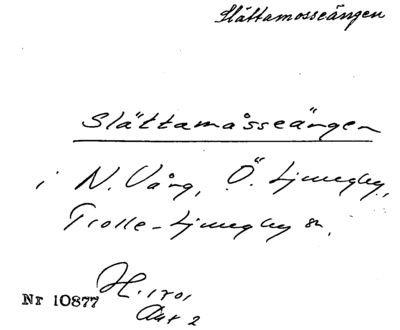 Slättamosseängen
Slättamåsseängen
i N. Vång, Ö. Ljungby,
Trolle-Ljungby sn.
H. 1701
Akt 2
Nr 10877